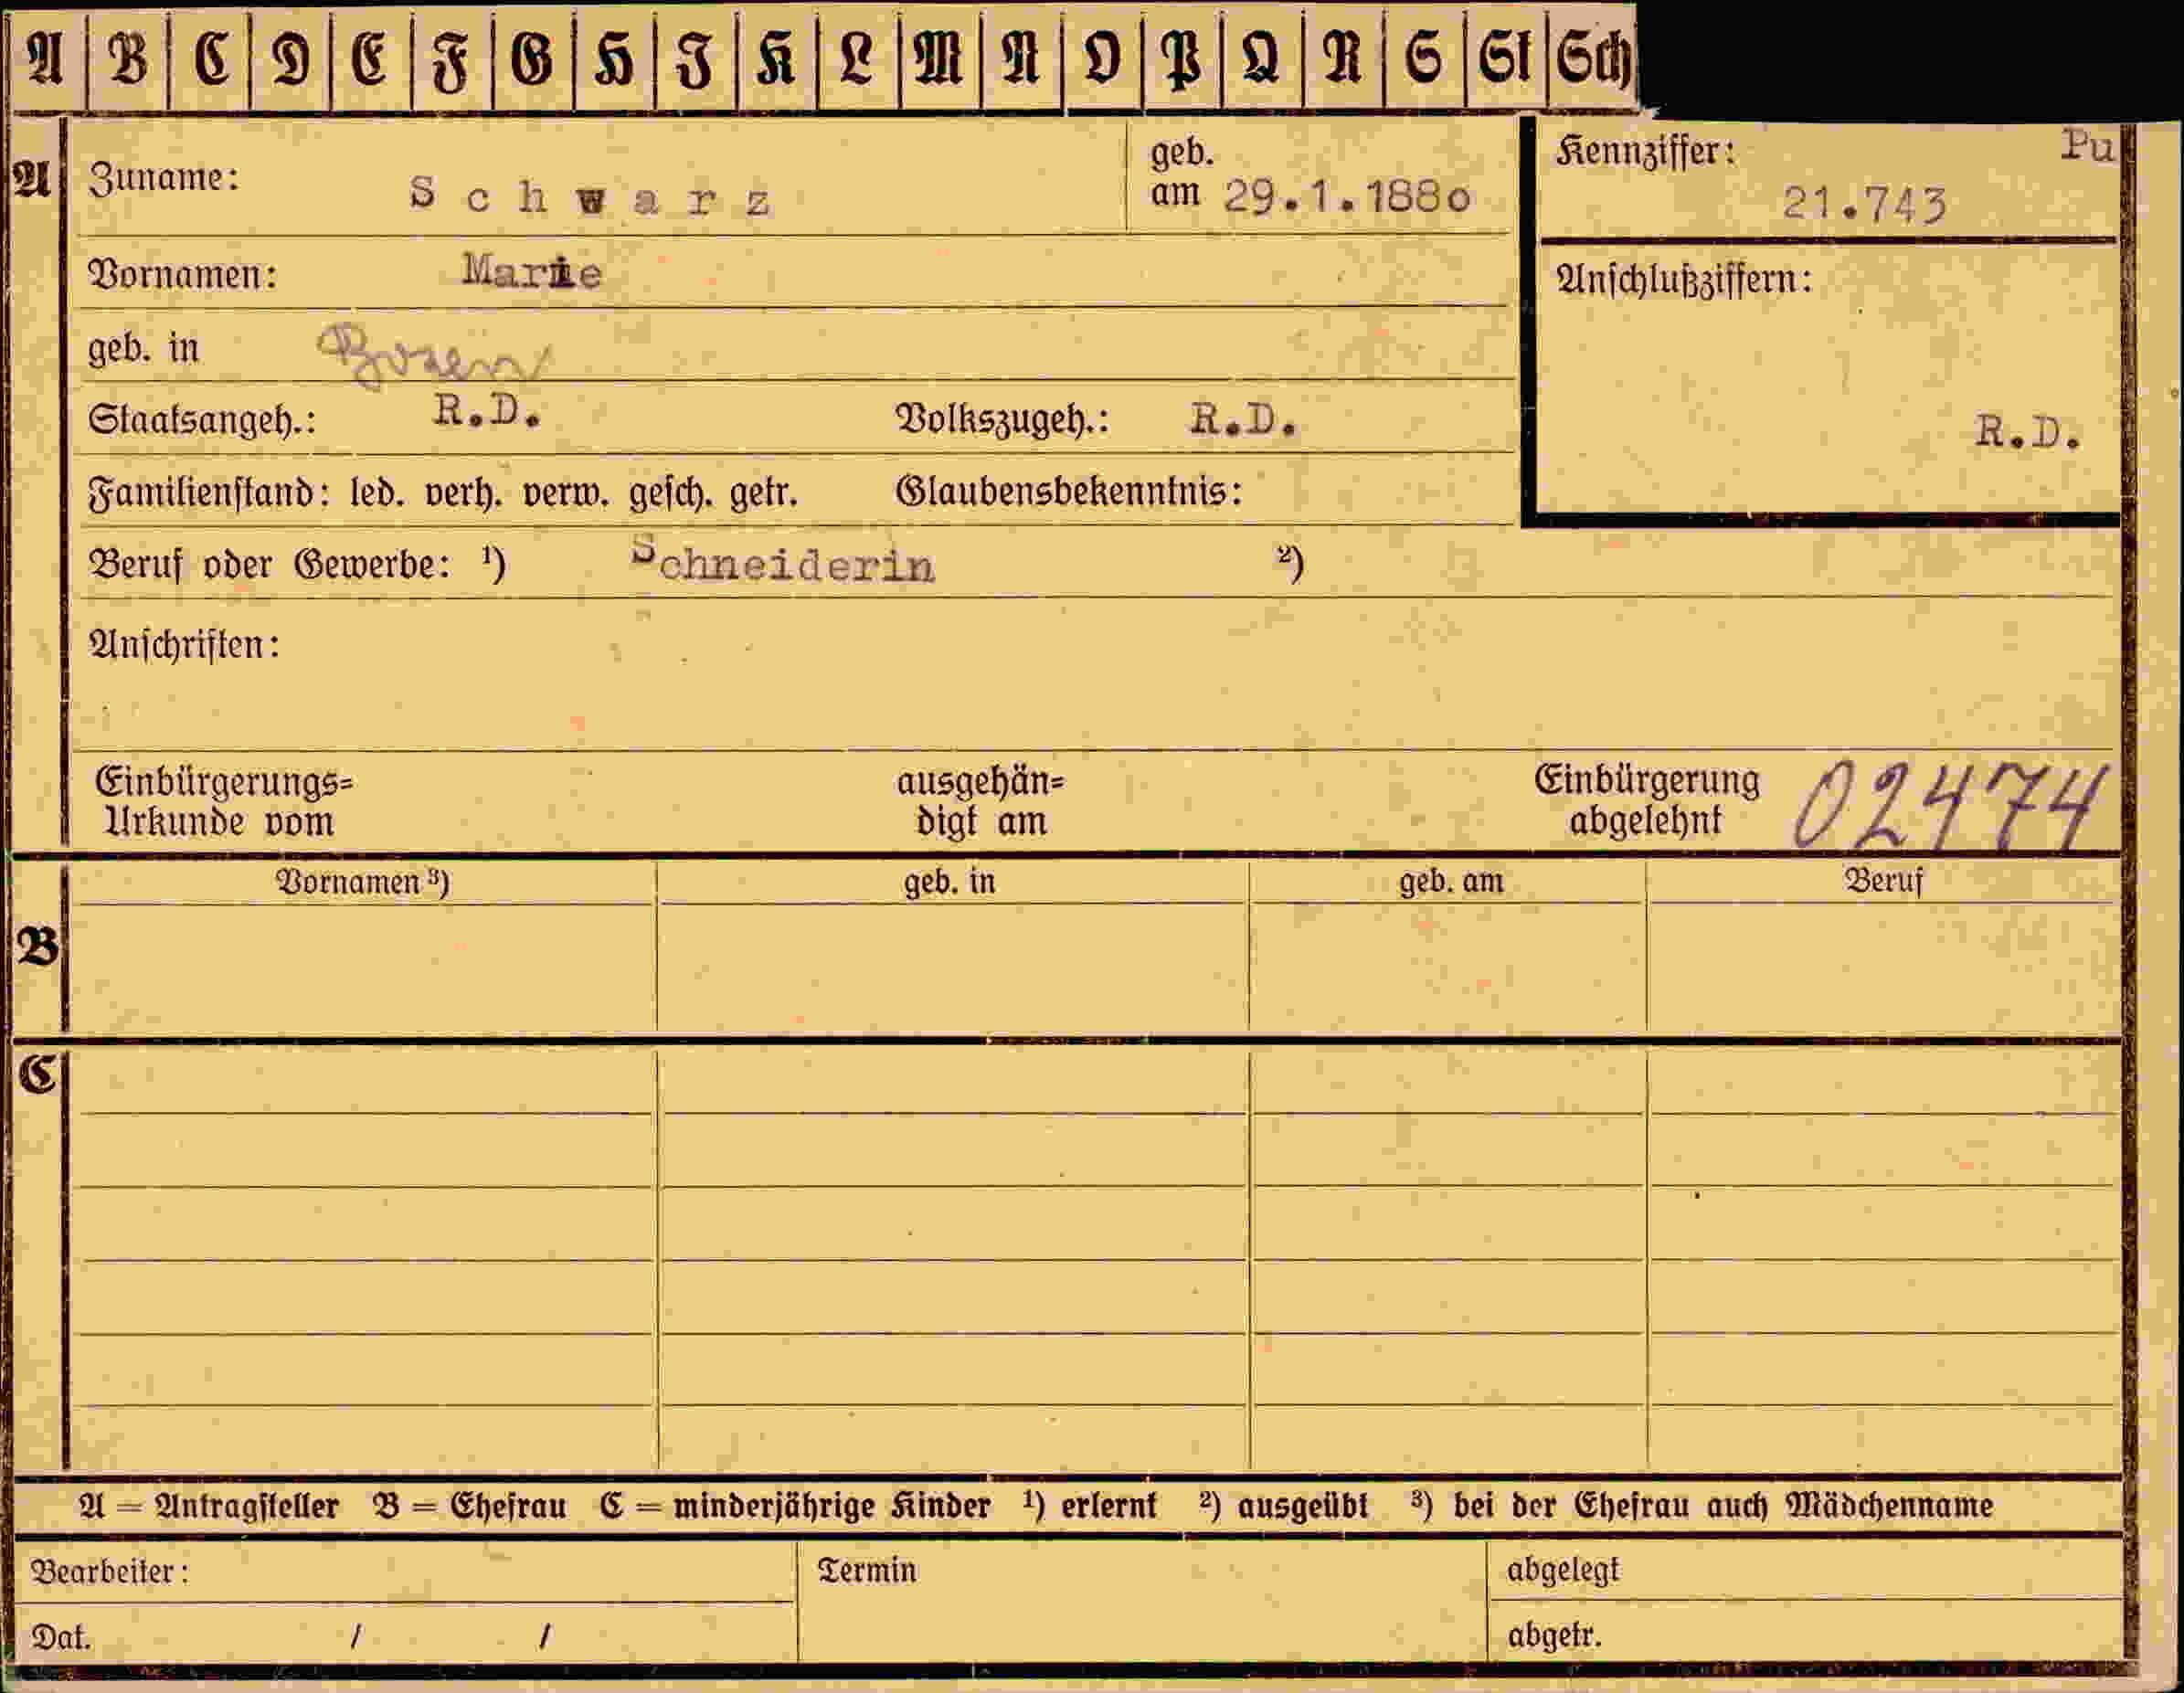 A B C D E F G H J K L M N O P Q R S St Sch
A Zuname: Schwarz geb. am 29.1.1880 Kennziffer: Pu 21.743
Vornamen: Marie Anschlußziffern:
geb. in Bozen
Staatsangeh.: R.D. Volkszugeh.: R.D. R.D.
Familienstand: led. verh. verw. gesch. getr. Glaubensbekenntnis:
Beruf oder Gewerbe: ¹) Schneiderin ²)
Anschriften:
Einbürgerungs= ausgehän= Einbürgerung 02474
Urkunde vom digt am abgelehnt
Vornamen ³) geb. in geb. am Beruf
B
C
A = Antragsteller B = Ehefrau C = minderjährige Kinder ¹) erlernt ²) ausgeübt ³) bei der Ehefrau auch Mädchenname
Bearbeiter: Termin abgelegt
Dat. / / abgetr.